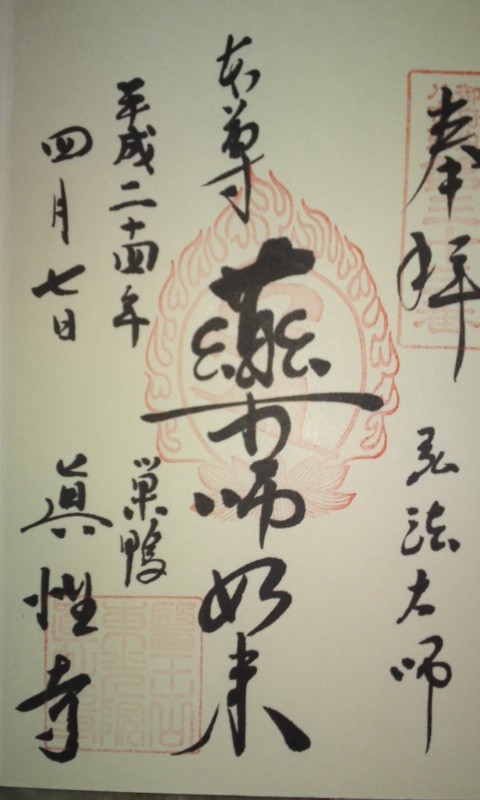 奉拝
弘法大師
本尊
薬師如来
平成二十四年
四月七日
巣鴨
眞性寺